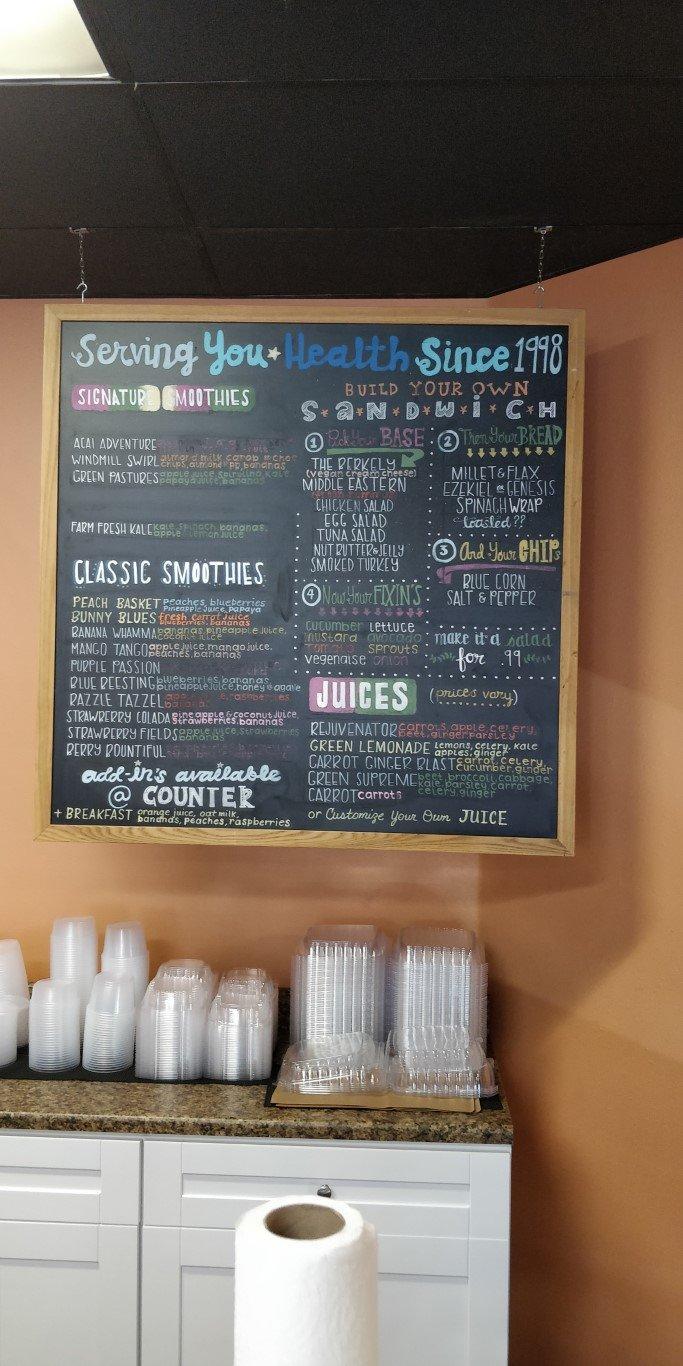 Serving You Health Since 1998
SIGNATURE SMOOTHIES
ACAI ADVENTURE
WINDMILL SWIRL almond milk, carob
chips, almond PB, bananas
GREEN PASTURES apple juice, spirulina, kale,
papaya juice, bananas
FARM FRESH KALE kale, spinach, bananas,
apple juice
CLASSIC SMOOTHIES
PEACH BASKET peaches, blueberries
pineapple juice, papaya
BUNNY BLUES fresh carrot juice
blueberries, bananas
BANANA WHAMMA bananas, pineapple juice,
coconut juice
MANGO TANGO apple juice, mango juice,
peaches, bananas
PURPLE PASSION
BLUE BEESTING blueberries, bananas,
pineapple juice, honey or agave
RAZZLE TAZZEL raspberries,
bananas
STRAWBERRY COLADA pineapple & coconut juice,
strawberries, bananas
STRAWBERRY FIELDS apple juice, strawberries
bananas
BERRY BOUNTIFUL
add-in's available
@ COUNTER
+ BREAKFAST orange juice, oat milk,
bananas, peaches, raspberries
BUILD YOUR OWN
SANDWICH
1 Pick Your BASE
THE BERKELY
(vegan cream cheese)
MIDDLE EASTERN
CHICKEN SALAD
EGG SALAD
TUNA SALAD
NUT BUTTER & JELLY
SMOKED TURKEY
2 Then Your BREAD
MILLET & FLAX
EZEKIEL or GENESIS
SPINACH WRAP
toasled??
3 And Your CHIPs
BLUE CORN
SALT & PEPPER
4 Now Your FIXIN'S
cucumber lettuce
mustard avocado
tomato sprouts
vegenaise onion
make it a salad
for .99
JUICES (prices vary)
REJUVENATOR carrots, apple, celery,
beet, ginger, parsley
GREEN LEMONADE lemons, celery, kale
apples, ginger
CARROT GINGER BLAST carrot, celery,
cucumber, ginger
GREEN SUPREME beet, broccoli, cabbage,
kale, parsley, carrot,
celery, ginger
CARROT carrots
or Customize Your Own JUICE